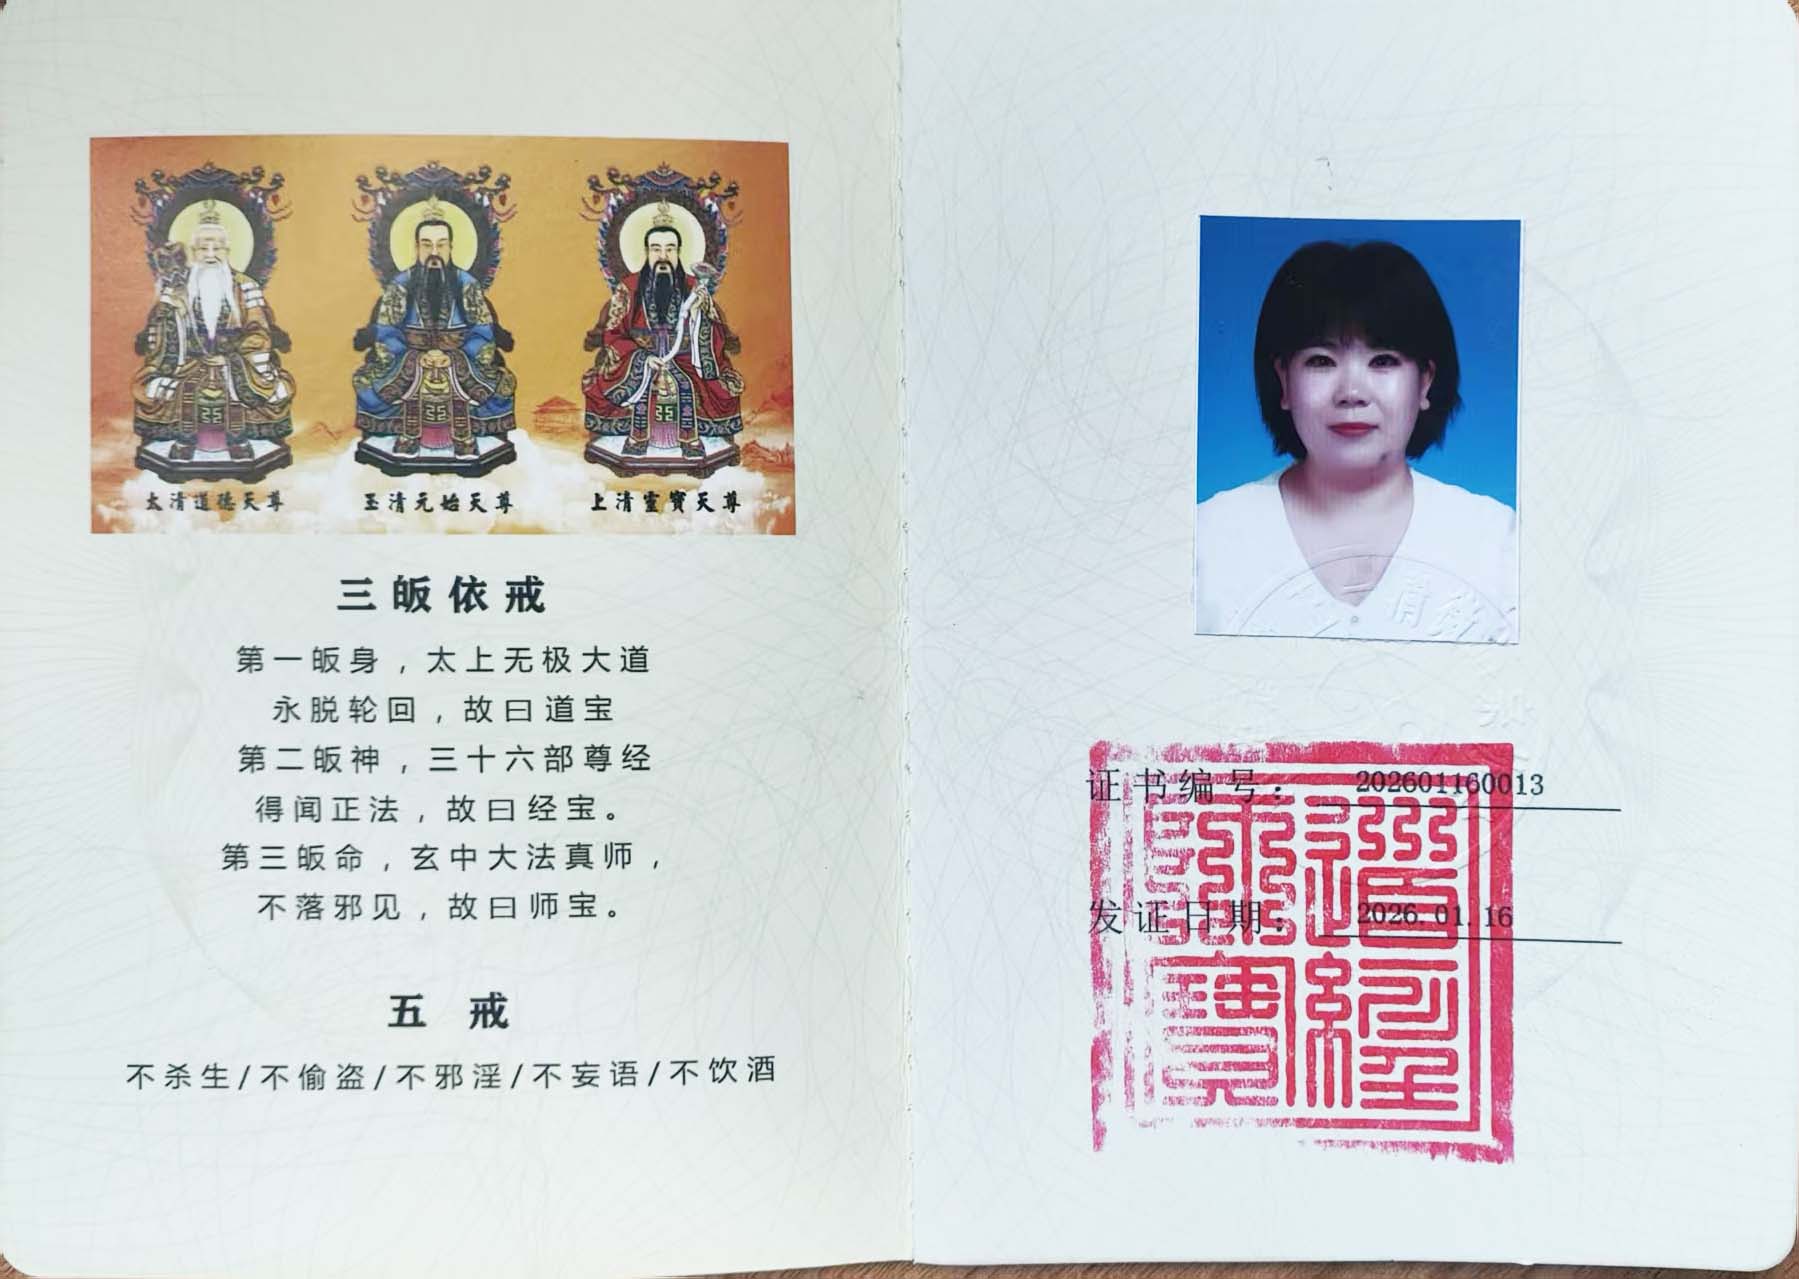 太清道德天尊
玉清元始天尊
上清靈寶天尊
三皈依戒
第一皈身，太上无极大道
永脱轮回，故曰道宝
第二皈神，三十六部尊经
得闻正法，故曰经宝。
第三皈命，玄中大法真师，
不落邪见，故曰师宝。
五 戒
不杀生/不偷盗/不邪淫/不妄语/不饮酒
证书编号： 202601160013
发证日期： 2026.01.16
道經師寶